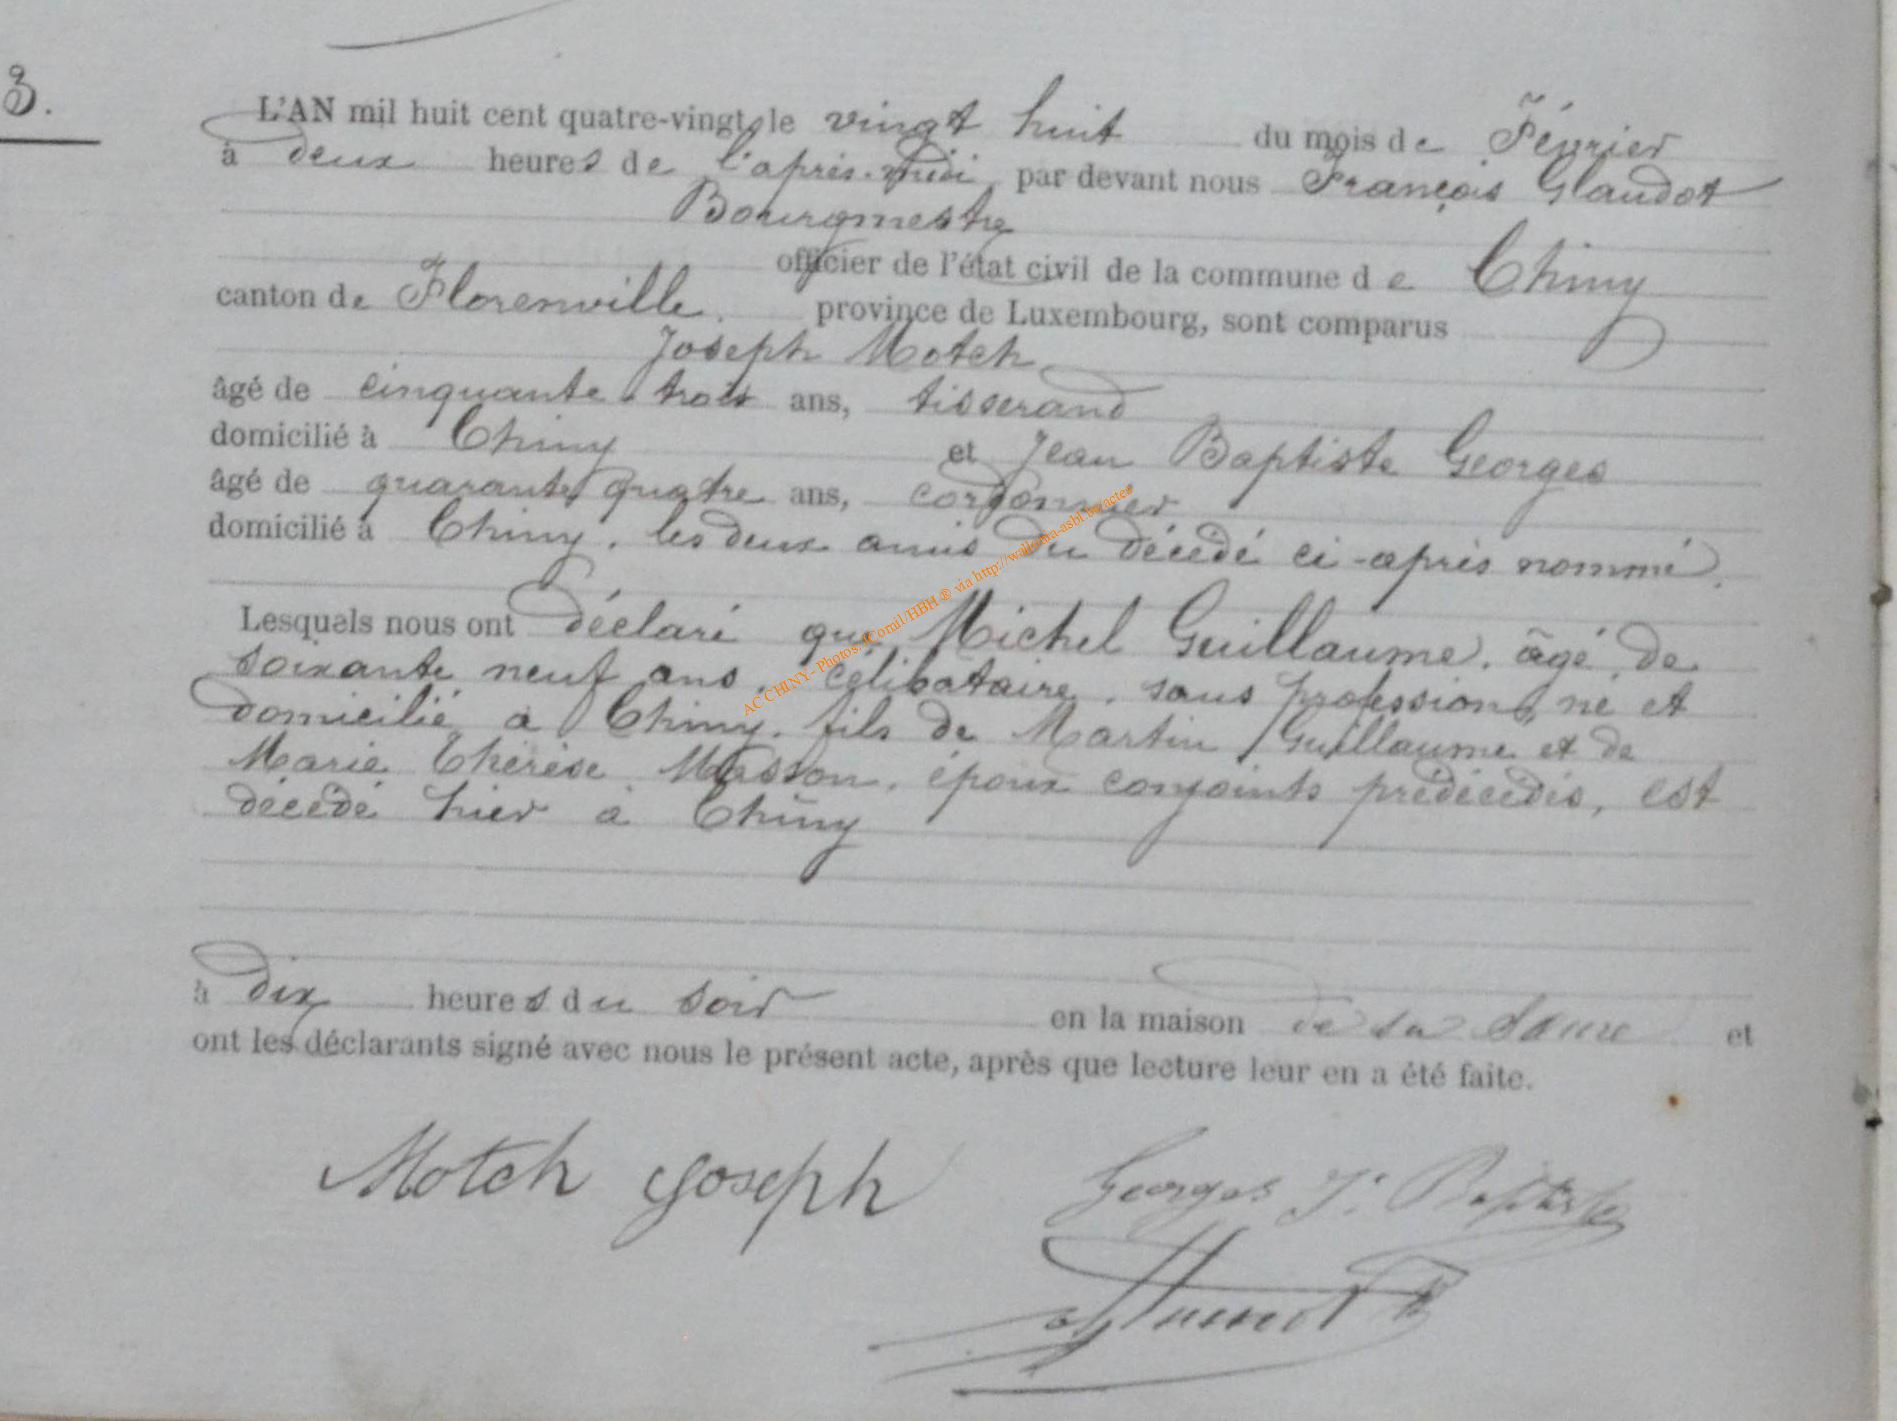 3.
L'AN mil huit cent quatre-vingt le vingt huit du mois de Février
à deux heures de l'après-midi, par devant nous François Glaudot
Bourgmestre
officier de l'état civil de la commune de Chiny
canton de Florenville. province de Luxembourg, sont comparus
Joseph Motch
âgé de cinquante trois ans, tisserand
domicilié à Chiny et Jean Baptiste Georges
âgé de quarante quatre ans, cordonnier
domicilié à Chiny. les deux amis du décédé ci-après nommé.
Lesquels nous ont déclaré que Michel Guillaume. âgé de
soixante neuf ans, célibataire, sans profession, né et
domicilié à Chiny. fils de Martin Guillaume et de
Marie Thérèse Masson, époux conjoints prédécédés, est
décédé hier à Chiny
à dix heures du soir en la maison de sa et
ont les déclarants signé avec nous le présent acte, après que lecture leur en a été faite.
Motch Joseph Georges J. Baptiste
AC CHINY - Photos: JComil/HBH ® via http://wallonia-asbl.be/actes